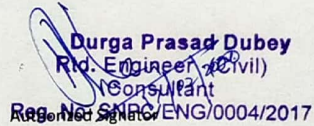 Durga Prasad Dubey
Rtd. Engineer (Civil)
Consultant
Reg. No. SNPC/ENG/0004/2017
Authorized Signator